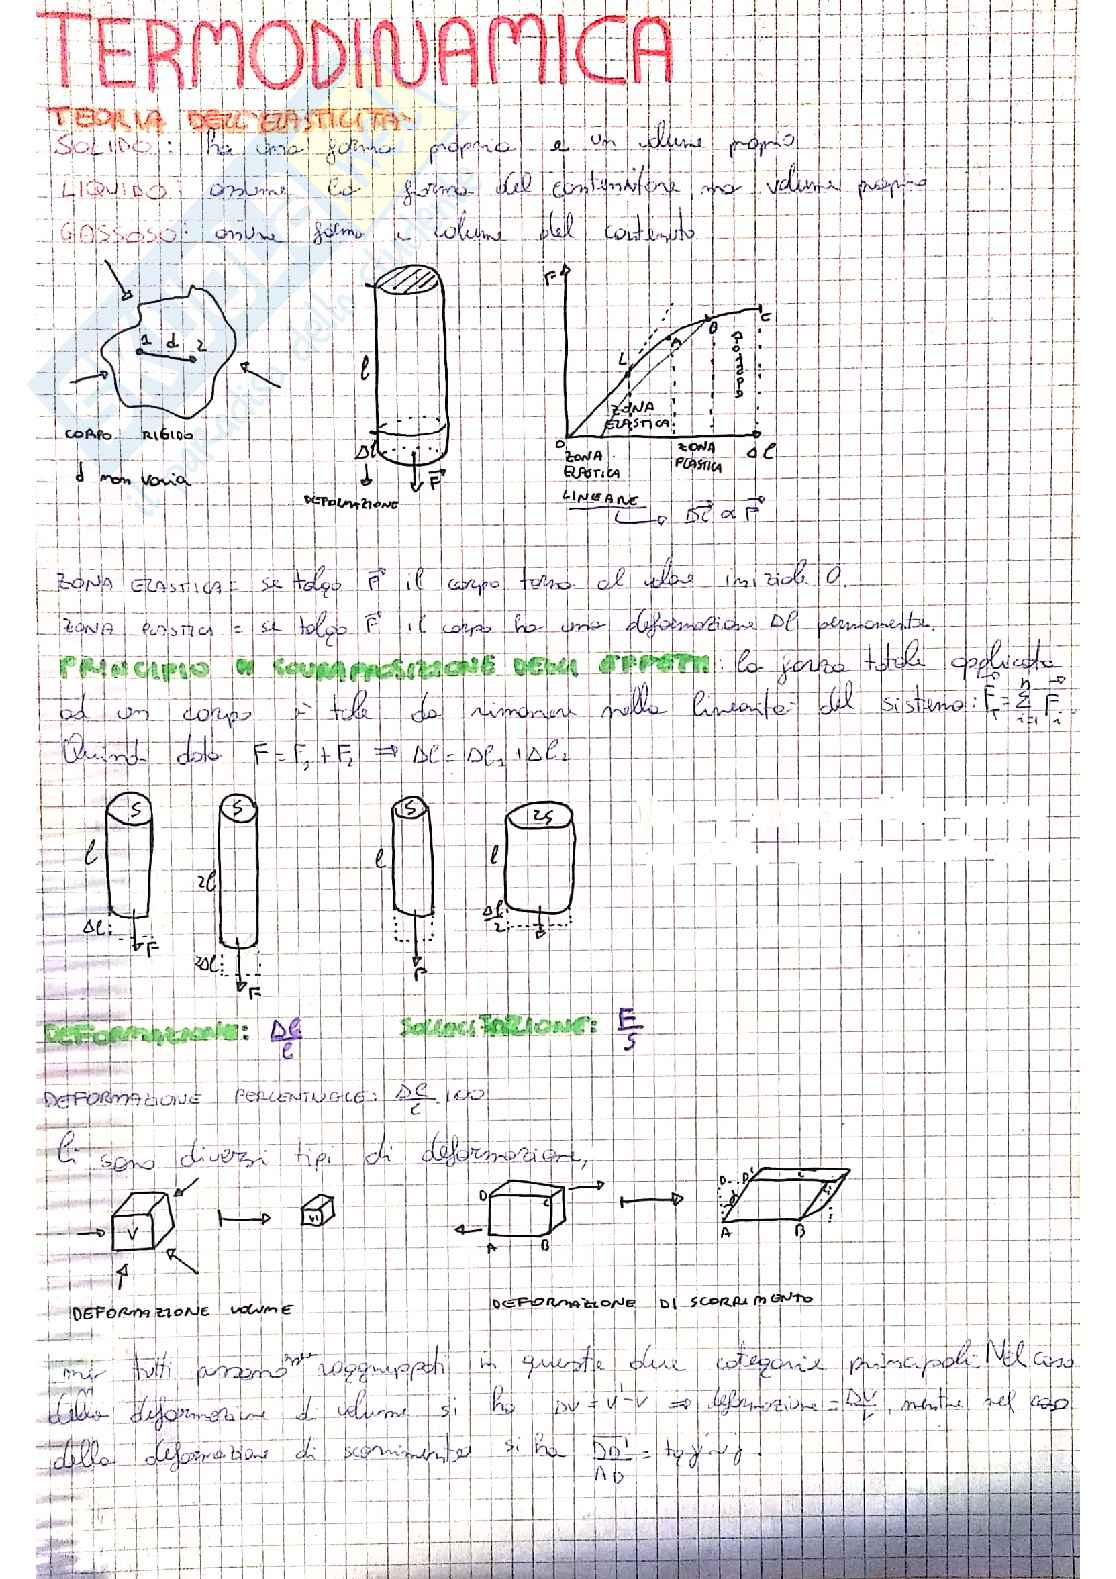 TERMODINAMICA
TEORIA DELL'ELASTICITA'
SOLIDO: ha una forma propria e un volume proprio
LIQUIDO: assume la forma del contenitore, ma volume proprio
GASSOSO: assume forma e volume del contenuto
1 d 2
CORPO RIGIDO
d non varia
l
Δl
F
DEFORMAZIONE
F
L A B C
ROTTURA
ZONA ELASTICA
O
ZONA ELASTICA LINEARE
ZONA PLASTICA
Δl
Δl ∝ F
ZONA ELASTICA = se tolgo F il corpo torna al valore iniziale 0.
ZONA PLASTICA = se tolgo F il corpo ha una deformazione Δl permanente.
PRINCIPIO DI SOVRAPPOSIZIONE DEGLI EFFETTI: la forza totale applicata
ad un corpo è tale da rimanere nella linearità del sistema: F_T = Σ_{i=1}^{n} F_i.
Quindi dato F = F₁ + F₂ ⇒ Δl = Δl₁ + Δl₂
S S S 2S
l 2l l l
Δl F 2Δl F F Δl/2 F
DEFORMAZIONE: Δl/l SOLLECITAZIONE: F/S
DEFORMAZIONE PERCENTUALE: Δl/l · 100
Ci sono diversi tipi di deformazione,
V V' D C A B D D' C A B
DEFORMAZIONE VOLUME DEFORMAZIONE DI SCORRIMENTO
ma tutti possono raggruppati in queste due categorie principali. Nel caso
della deformazione di volume si ha ΔV = V' - V ⇒ deformazione = ΔV/V, mentre nel caso
della deformazione di scorrimento si ha DD'/AD = tgγ ~ γ.